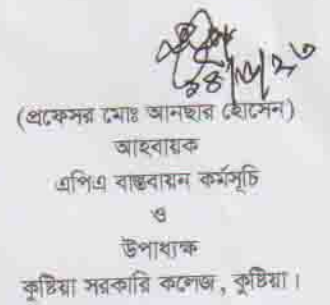 (প্রফেসর মোঃ আনছার হোসেন)
আহবায়ক
এপিএ বাস্তবায়ন কর্মসূচি
ও
উপাধ্যক্ষ
কুষ্টিয়া সরকারি কলেজ, কুষ্টিয়া।